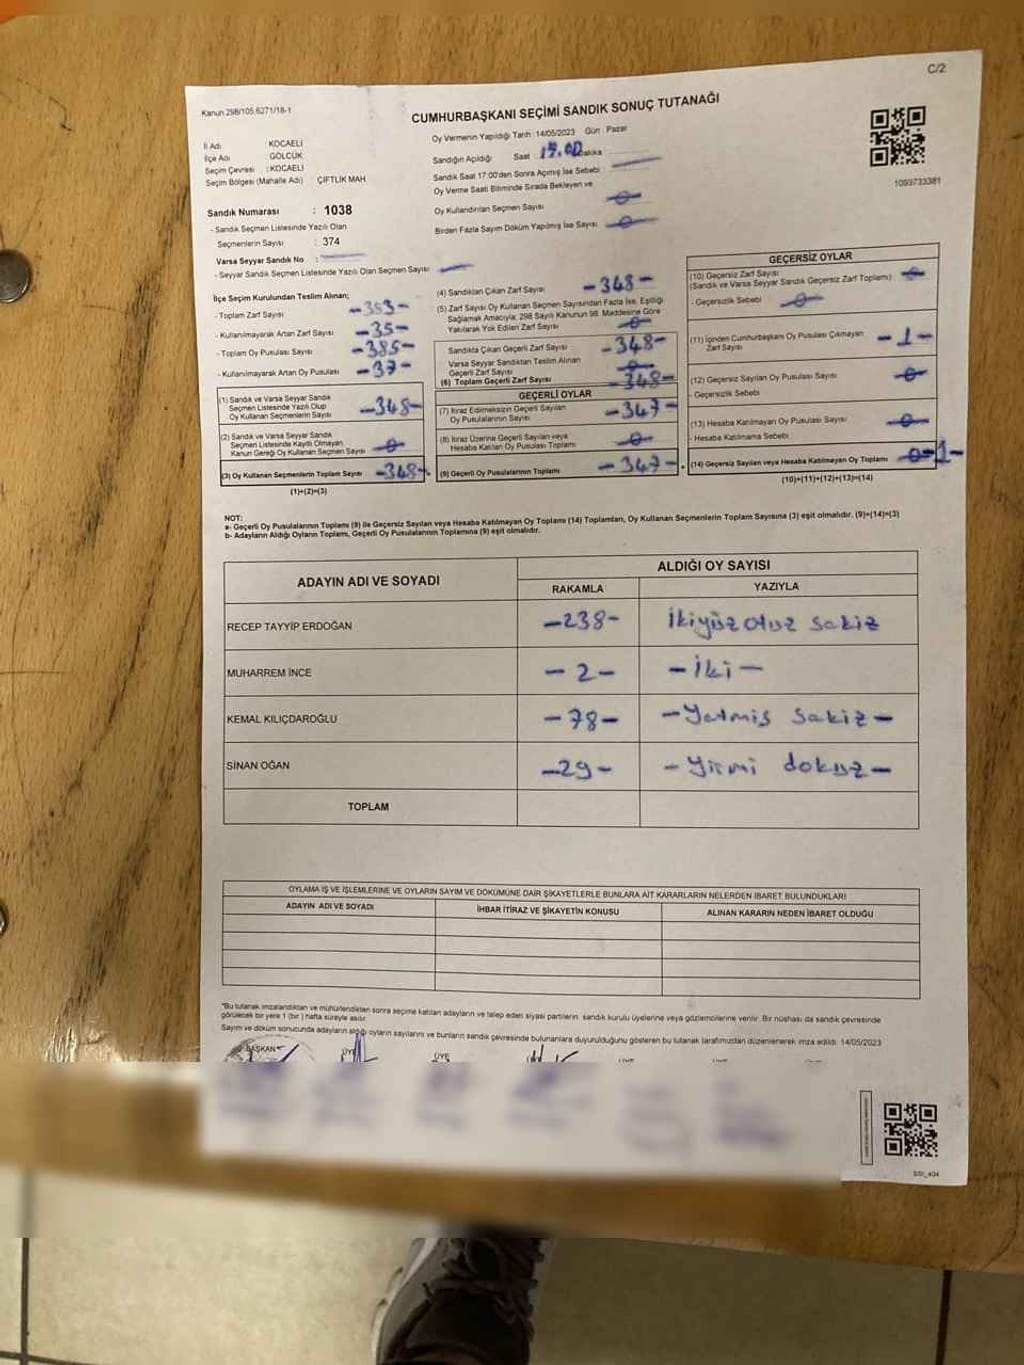 C/2
Kanun 298/105,6271/18-1
CUMHURBAŞKANI SEÇİMİ SANDIK SONUÇ TUTANAĞI
1093733381
İl Adı KOCAELİ
İlçe Adı GÖLCÜK
Seçim Çevresi : KOCAELİ
Seçim Bölgesi (Mahalle Adı) ÇİFTLİK MAH.
Sandık Numarası : 1038
- Sandık Seçmen Listesinde Yazılı Olan
Seçmenlerin Sayısı : 374
Varsa Seyyar Sandık No :
- Seyyar Sandık Seçmen Listesinde Yazılı Olan Seçmen Sayısı
Oy Vermenin Yapıldığı Tarih : 14/05/2023 Gün : Pazar
Sandığın Açıldığı Saat 17.00 Dakika
Sandık Saat 17:00'den Sonra Açımış İse Sebebi
Oy Verme Saati Bitiminde Sırada Bekleyen ve
Oy Kullandırılan Seçmen Sayısı -0-
Birden Fazla Sayım Döküm Yapılmış İse Sayısı -0-
İlçe Seçim Kurulundan Teslim Alınan;
- Toplam Zarf Sayısı -383-
- Kullanılmayarak Artan Zarf Sayısı -35-
- Toplam Oy Pusulası Sayısı -385-
- Kullanılmayarak Artan Oy Pusulası -37-
(1) Sandık ve Varsa Seyyar Sandık
Seçmen Listesinde Yazılı Olup
Oy Kullanan Seçmenlerin Sayısı -348-
(2) Sandık ve Varsa Seyyar Sandık
Seçmen Listesinde Kaydı Olmayan
Kanun Gereği Oy Kullanan Seçmen Sayısı -0-
(3) Oy Kullanan Seçmenlerin Toplam Sayısı -348-
(1)+(2)=(3)
(4) Sandıktan Çıkan Zarf Sayısı -348-
(5) Zarf Sayısı Oy Kullanan Seçmen Sayısından Fazla İse, Eşitliği
Sağlamak Amacıyla; 298 Sayılı Kanunun 98. Maddesine Göre
Yakılarak Yok Edilen Zarf Sayısı -0-
Sandıkta Çıkan Geçerli Zarf Sayısı -348-
Varsa Seyyar Sandıktan Teslim Alınan
Geçerli Zarf Sayısı -0-
(6) Toplam Geçerli Zarf Sayısı -348-
GEÇERLİ OYLAR
(7) İtiraz Edilmeksizin Geçerli Sayılan
Oy Pusulalarının Sayısı -347-
(8) İtiraz Üzerine Geçerli Sayılan veya
Hesaba Katılan Oy Pusulası Toplamı -0-
(9) Geçerli Oy Pusulalarının Toplamı -347-
GEÇERSİZ OYLAR
(10) Geçersiz Zarf Sayısı
(Sandık ve Varsa Seyyar Sandık Geçersiz Zarf Toplamı) -0-
- Geçersizlik Sebebi -0-
(11) İçinden Cumhurbaşkanı Oy Pusulası Çıkmayan
Zarf Sayısı -1-
(12) Geçersiz Sayılan Oy Pusulası Sayısı -0-
- Geçersizlik Sebebi
(13) Hesaba Katılmayan Oy Pusulası Sayısı -0-
- Hesaba Katılmama Sebebi
(14) Geçersiz Sayılan veya Hesaba Katılmayan Oy Toplamı -0-1-
(10)+(11)+(12)+(13)=(14)
NOT:
a- Geçerli Oy Pusulalarının Toplamı (9) ile Geçersiz Sayılan veya Hesaba Katılmayan Oy Toplamı (14) Toplamları, Oy Kullanan Seçmenlerin Toplam Sayısına (3) eşit olmalıdır. (9)+(14)=(3)
b- Adayların Aldığı Oyların Toplamı, Geçerli Oy Pusulalarının Toplamına (9) eşit olmalıdır.
ADAYIN ADI VE SOYADI ALDIĞI OY SAYISI
RAKAMLA YAZIYLA
RECEP TAYYİP ERDOĞAN -238- İkiyüz otuz sakiz
MUHARREM İNCE -2- -İki-
KEMAL KILIÇDAROĞLU -78- -Yetmiş sakiz-
SİNAN OĞAN -29- -Yirmi dokuz-
TOPLAM
OYLAMA İŞ VE İŞLEMLERİNE VE OYLARIN SAYIM VE DÖKÜMÜNE DAİR ŞİKAYETLERLE BUNLARA AİT KARARLARIN NELERDEN İBARET BULUNDUKLARI
ADAYIN ADI VE SOYADI İHBAR İTİRAZ VE ŞİKAYETİN KONUSU ALINAN KARARIN NEDEN İBARET OLDUĞU
*Bu tutanak imzalandıktan ve mühürlendikten sonra seçime katılan adayların ve talep eden siyasi partilerin, sandık kurulu üyelerine veya gözlemcilerine verilir. Bir nüshası da sandık çevresinde
görülecek bir yere 1 (bir ) hafta süreyle asılır.
Sayım ve döküm sonucunda adayların aldığı oyların sayılarını ve bunların sandık çevresinde bulunanlara duyurulduğunu gösteren bu tutanak tarafımızdan düzenlenerek imza edildi. 14/05/2023
BAŞKAN ÜYE ÜYE
SSI_404